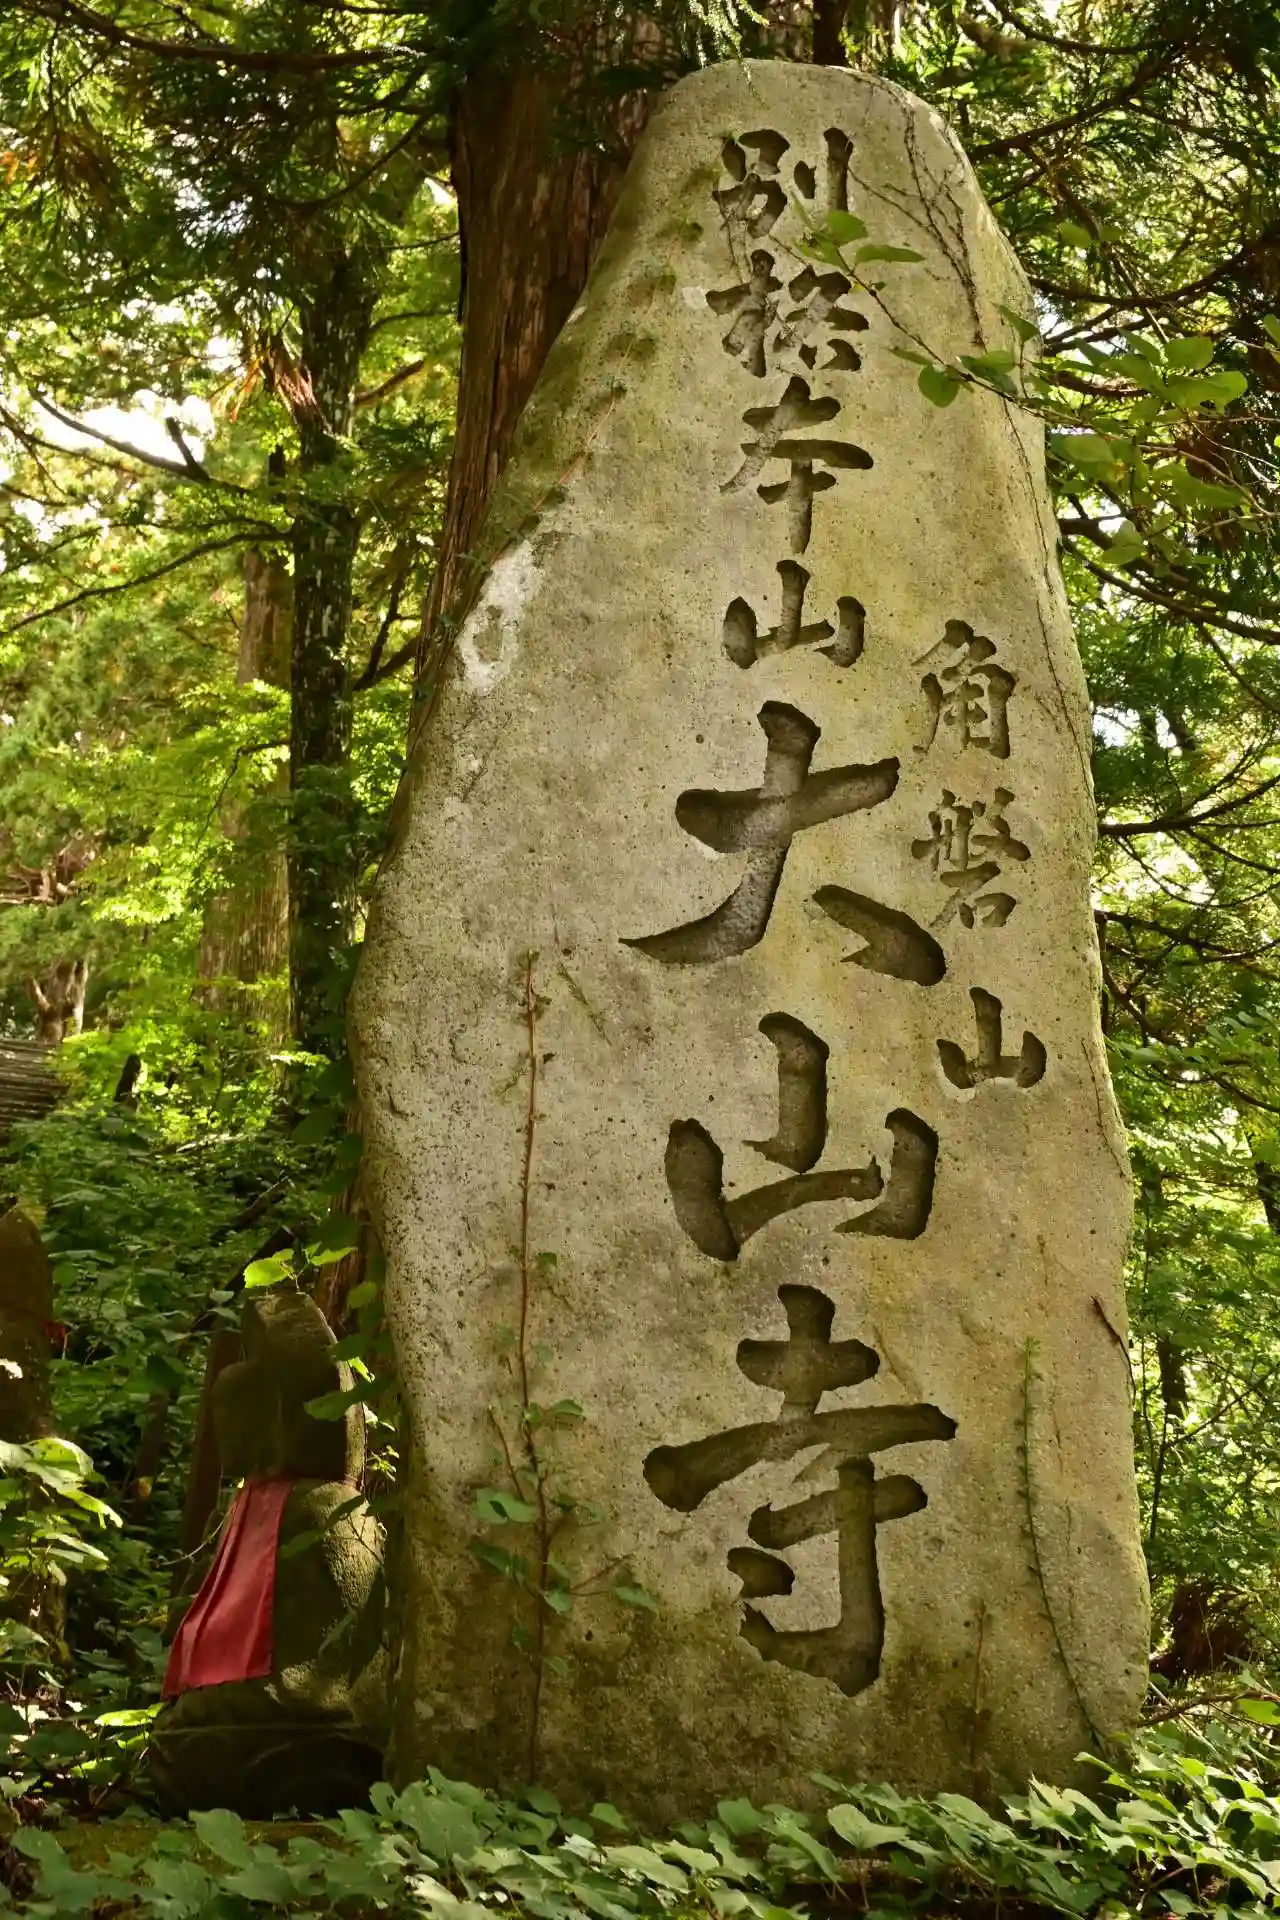 角磐山
別格本山大山寺